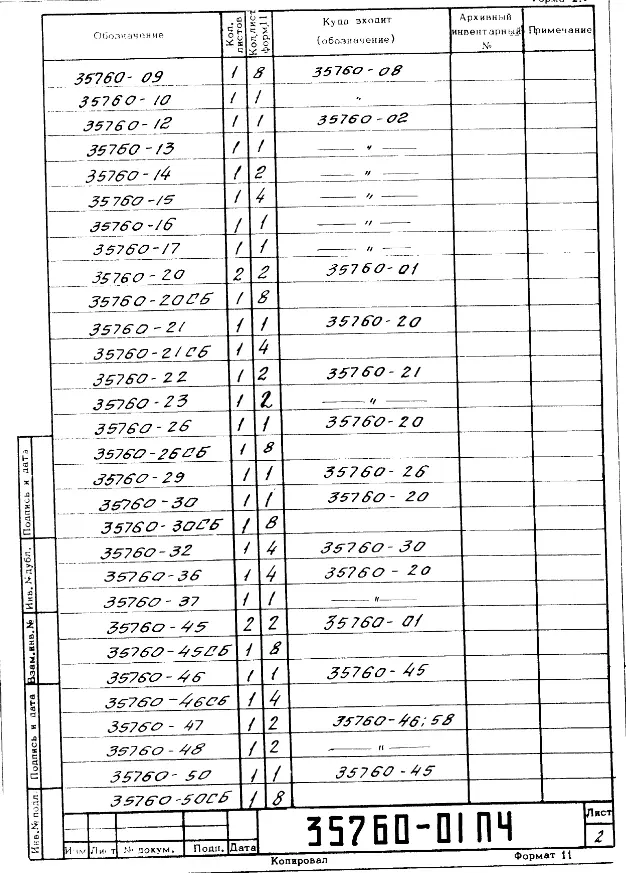 Форма 2.
Обозначение Кол. листов Кол. лист. форм. 11 Куда входит (обозначение) Архивный инвентарный № Примечание
35760-09 1 8 35760-08
35760-10 1 1 "
35760-12 1 1 35760-02
35760-13 1 1 — " —
35760-14 1 2 — " —
35760-15 1 4 — " —
35760-16 1 1 — " —
35760-17 1 1 — " —
35760-20 2 2 35760-01
35760-20СБ 1 8
35760-21 1 1 35760-20
35760-21СБ 1 4
35760-22 1 2 35760-21
35760-23 1 2 — " —
35760-26 1 1 35760-20
35760-26СБ 1 8
35760-29 1 1 35760-26
35760-30 1 1 35760-20
35760-30СБ 1 8
35760-32 1 4 35760-30
35760-36 1 4 35760-20
35760-37 1 1 — " —
35760-45 2 2 35760-01
35760-45СБ 1 8
35760-46 1 1 35760-45
35760-46СБ 1 4
35760-47 1 2 35760-46; 58
35760-48 1 2 — " —
35760-50 1 1 35760-45
35760-50СБ 1 8
Подпись и дата
Инв. № дубл.
Взам.инв.№
Подпись и дата
Инв.№ подл
Изм Лист № докум. Подп. Дата
35760-01ПЧ
Лист
2
Копировал
Формат 11